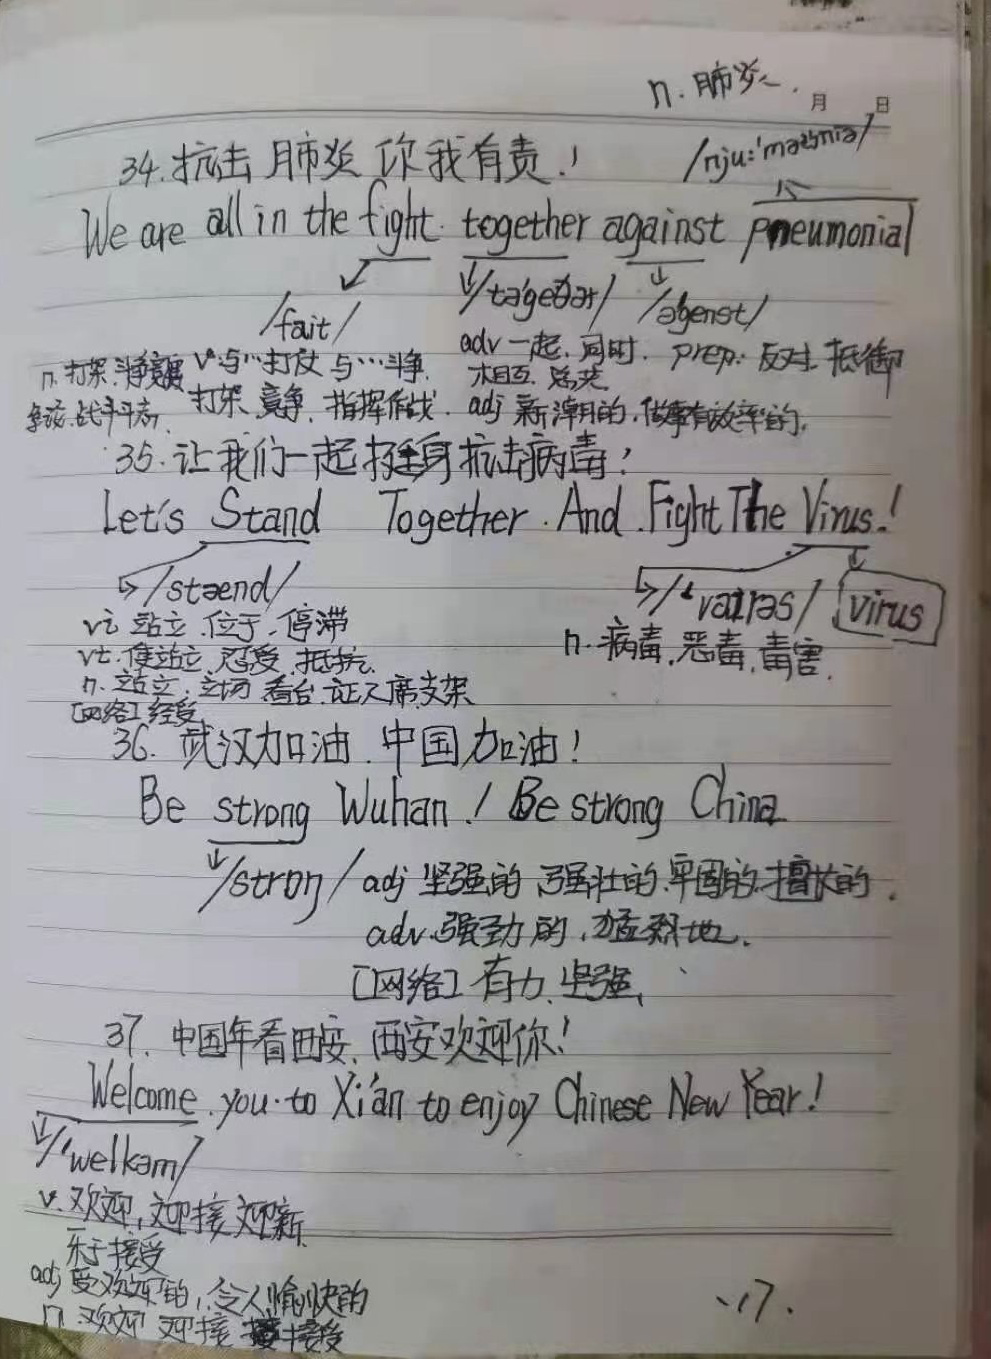 n. 肺炎.
月 日
34. 抗击肺炎 你我有责!
/nju:'məʊniə/
We are all in the fight together against pneumonial
/fait/ /tə'geðər/ /ə'genst/
adv 一起. 同时. prep: 反对. 抵御
n. 打架. 斗争 v. 与…打仗 与…斗争. 相互
战斗 打架 竞争. 指挥作战. adj 新潮的. 做事有效率的.
35. 让我们一起挺身抗击病毒!
Let's Stand Together. And. Fight The Virus.!
/stænd/ /'vaɪrəs/ virus
vi 站立. 位于. 停滞 n. 病毒, 恶毒, 毒害.
vt. 使站立. 忍受. 抵抗.
n. 站立. 立场 看台. 证人席. 支架
[网络] 经受
36. 武汉加油. 中国加油!
Be strong Wuhan! Be strong China
/strɒŋ/ adj 坚强的. 强壮的. 牢固的. 擅长的.
adv. 强劲的. 猛烈地.
[网络] 有力. 坚强.
37. 中国年看西安. 西安欢迎你!
Welcome you to Xi'an to enjoy Chinese New Year!
/'welkəm/
v. 欢迎, 迎接 迎新.
乐于接受
adj 受欢迎的, 令人愉快的
n. 欢迎 迎接 接受
.17.